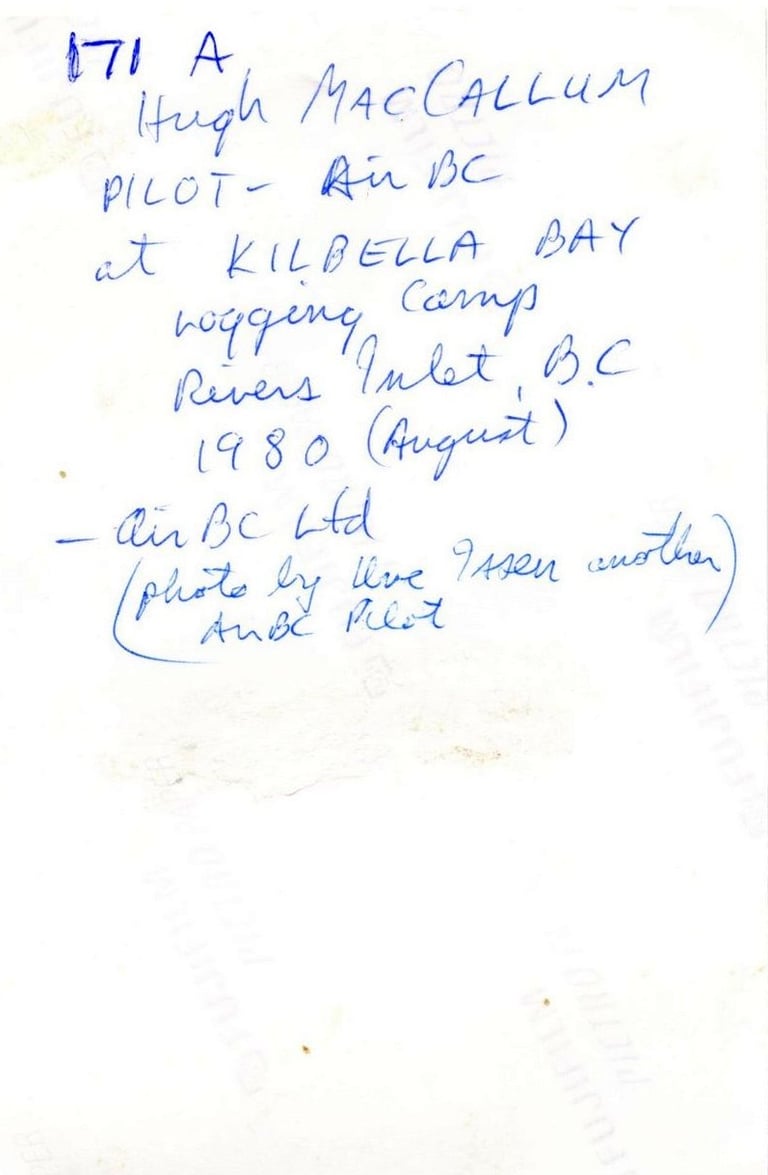 171 A
Hugh MACCALLUM
PILOT - Air BC
at KILBELLA BAY
Logging Camp
Rivers Inlet, B.C
1980 (August)
- Air BC Ltd
(photo by another)
Air BC Pilot